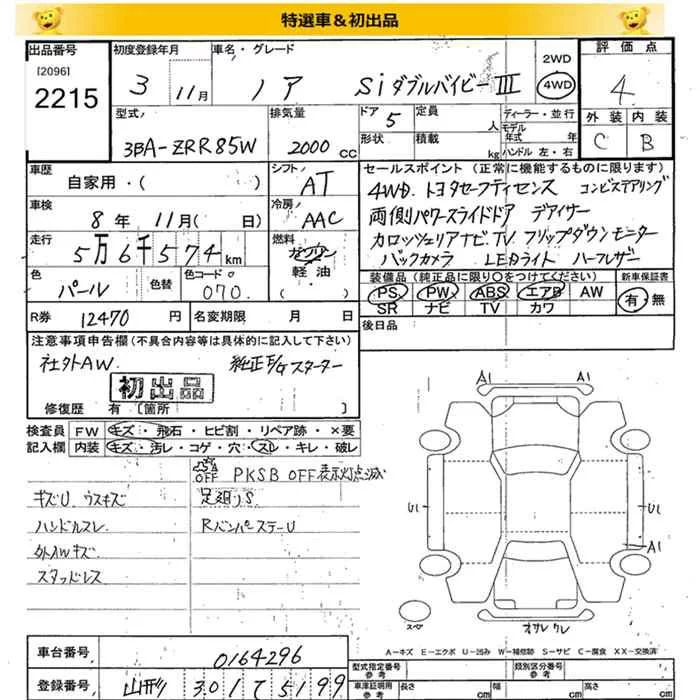 特選車&初出品
出品番号 初度登録年月 車名・グレード 2WD 4WD 評価点
[2096]
2215 3年 11月 ノア Si ダブルバイビー III 4
型式 排気量 ドア 定員 ディーラー・並行 外装 内装
3BA-ZRR85W 2000 cc 5 人 モデル年式 年 C B
形状 積載 kg ハンドル 左・右
車歴 シフト セールスポイント (正常に機能するものに限ります)
自家用・( ) AT 4WD. トヨタセーフティセンス コンビステアリング
車検 冷房 両側パワースライドドア デアイサー
8年 11月( 日) AAC カロッツェリアナビ.TV フリップダウンモニター
走行 燃料 バックカメラ LEDライト ハーフレザー
5万6千574km ガソリン 装備品 (純正品に限り○をつけてください) 新車保証書
色 色替 色コード 軽油 PS PW ABS エアB AW 有・無
パール 070 ・( ) SR ナビ TV カワ
R券 12470円 名変期限 月 日 後日品
注意事項申告欄(不具合内容等は具体的に記入して下さい)
社外AW 純正E/Gスターター
初出品
修復歴 有 [箇所
検査員 FW キズ・飛石・ヒビ割・リペア跡・×要
記入欄 内装 キズ・汚レ・コゲ・穴・スレ・キレ・破レ
OFF PKSB OFF表示灯点滅
キズU ウスキズ 足廻リS
ハンドルスレ RバンパーステーU
外AWキズ
スタッドレス
A1 A1
U1 U1
A1
スペア オサレ ワレ
A-キズ E-エクボ U-凹み W-補修跡 S-サビ C-腐食 XX-交換済
車台番号 0164296 型式指定番号 参考 類別区分番号 参考
登録番号 山形 301 て 5199 車庫証明用 参考 長さ cm 幅 cm 高さ cm